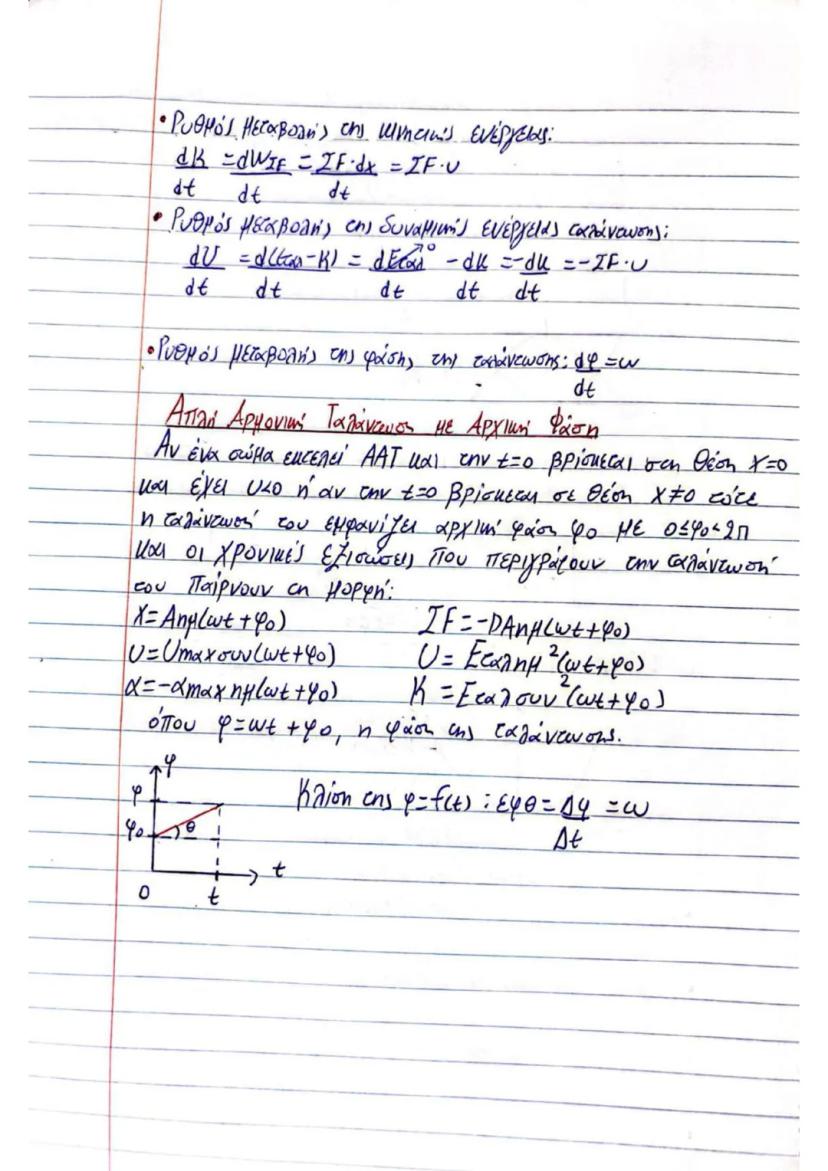 • Ρυθμός μεταβολής της κινητικής ενέργειας:
dK/dt = dW_ΣF/dt = ΣF·dx/dt = ΣF·υ
• Ρυθμός μεταβολής της δυναμικής ενέργειας ταλάντωσης:
dU/dt = d(Εταλ-Κ)/dt = dΕταλ/dt⁰ - dK/dt = -dK/dt = -ΣF·υ
• Ρυθμός μεταβολής της φάσης της ταλάντωσης: dφ/dt = ω
Απλή Αρμονική Ταλάντωση με Αρχική Φάση
Αν ένα σώμα εκτελεί ΑΑΤ και την t=0 βρίσκεται στη θέση x=0
και έχει υ<0 ή αν την t=0 βρίσκεται σε θέση x≠0 τότε
η ταλάντωσή του εμφανίζει αρχική φάση φ0 με 0≤φ0<2π
και οι χρονικές εξισώσεις που περιγράφουν την ταλάντωσή
του παίρνουν τη μορφή:
x=Αημ(ωt+φ0) ΣF=-DAημ(ωt+φ0)
υ=υmaxσυν(ωt+φ0) U=Εταλημ²(ωt+φ0)
α=-αmaxημ(ωt+φ0) K=Εταλσυν²(ωt+φ0)
όπου φ=ωt+φ0, η φάση της ταλάντωσης.
φ
φ
Κλίση της φ=f(t): εφθ=Δφ/Δt=ω
φ0 θ
t
0 t